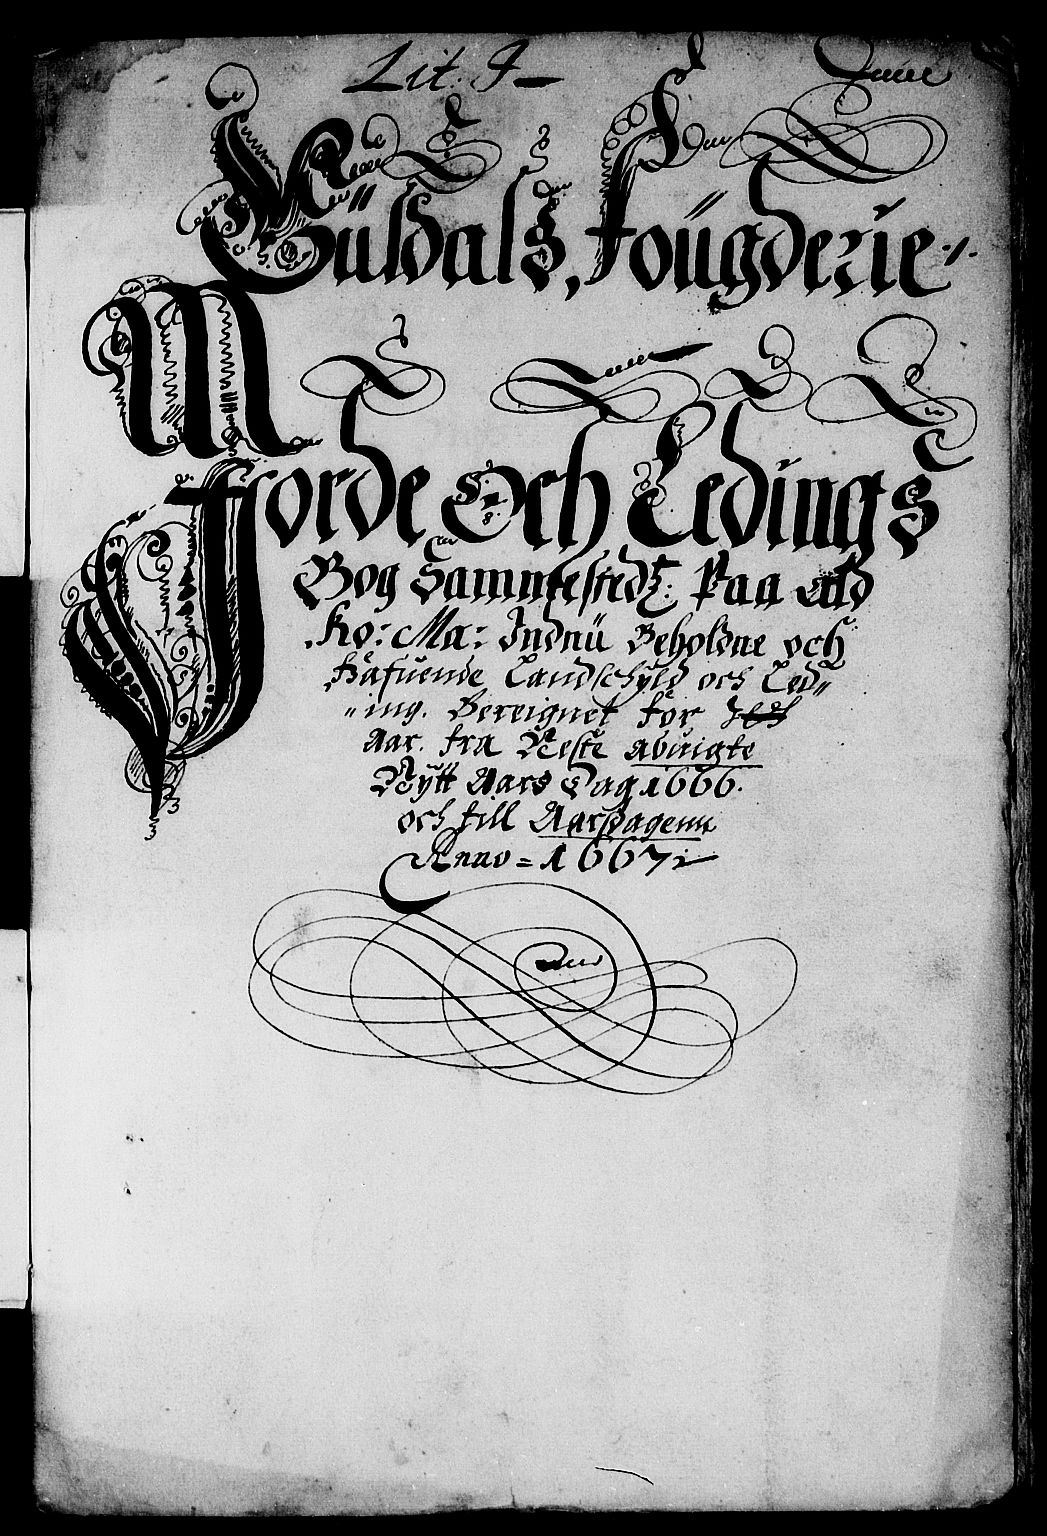 Lit. J
Güldals, Fougderie
Jorde Och Ledings
Bog Sammestedtz: Paa all
Ko: Ma: Indnü Beholdne och
Hafuende Landschyld och Led„
„ing. Bereignet for
Aar. fra Neste abuigte
Nytt Aars Dag 1666.
och till Aarsdagenn
Anno = 1667